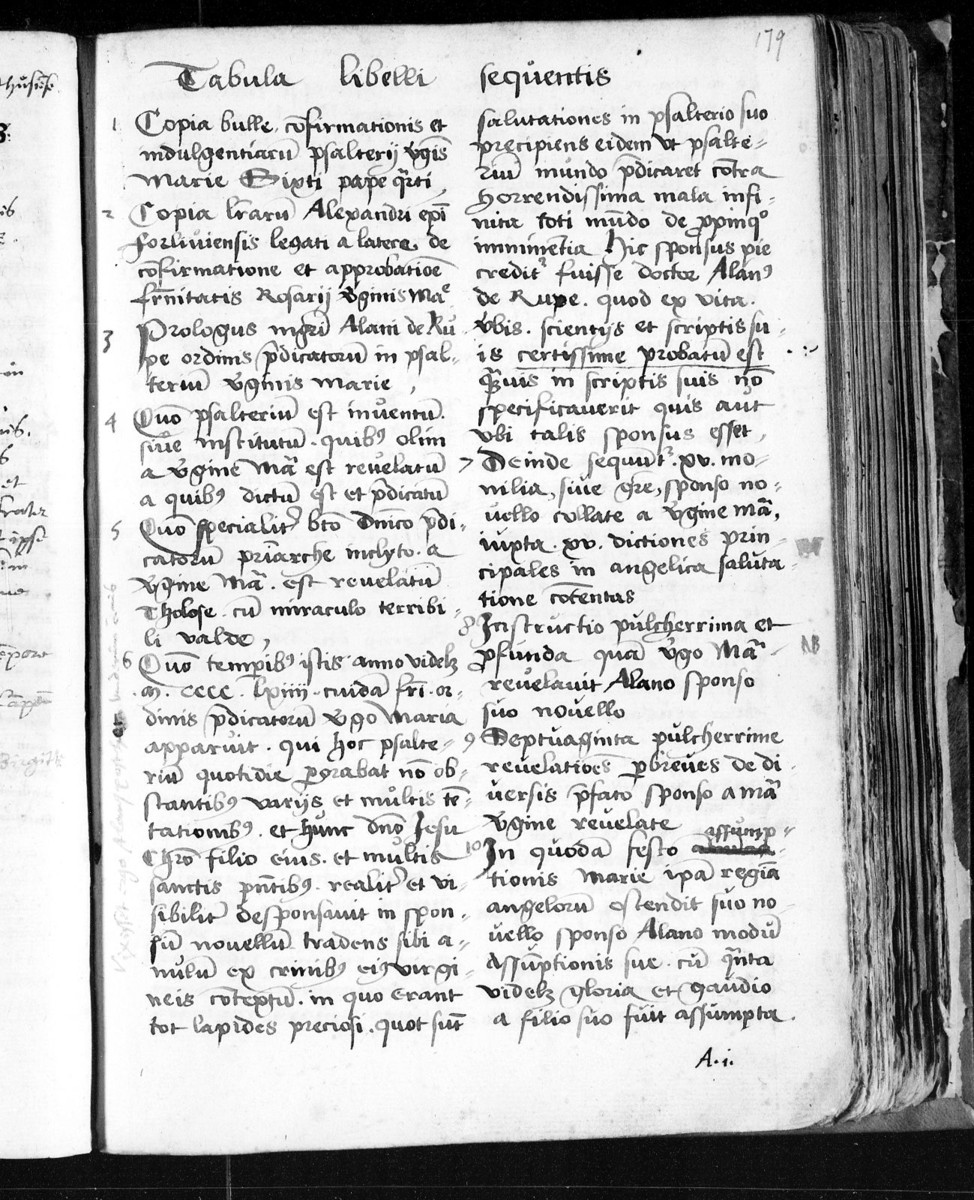 179
Tabula libelli sequentis
1 Copia bulle. cōfirmationis et
indulgentiarū psalterij v̄gīs
Marie Sixti pape q̄rti
2 Copia lr̄arū Alexandri ep̄i
forliuiensis legati a latere. de
cōfirmatione et approbatiōe
fr̄nitatis Rosarij v̄ginis Ma͞e
3 Prologus mgr̄i Alani de Ru
pe ordinis p̄dicatorū in psal-
teriū v̄ginis marie,
4 Quō psalteriū est inuentū.
siue institutū. quibꝰ olim
a v̄gine Ma͞ est reuelatū
a quibꝰ dictū est et p̄dicatū
5 Quō specialit͛ bt̄o Dn̄ico p̄di-
catorū pr̄iarche inclyto. a
v̄gine Ma͞. est reuelatū
Tholose. cū miraculo terribi-
li valde,
6 Quō tempibꝰ istis anno videlꝫ
.M. cccc. lxiiii. cuidā fr̄i. or-
dinis p̄dicatorū v̄go Maria
apparuit. qui hoc psalte-
riū quotidie ꝑorabat nō ob-
stantibꝰ varijs et multis tē-
tationibꝰ. et hunc dn̄o Jesu
Chr̄o filio eius. et multis
sanctis pn̄tibꝰ. realit͛ et vi-
sibilit͛ desponsauit in spon-
sū nouellū tradens sibi a-
nulū ex crinibꝰ eiꝰ virgi-
neis cōtextū. in quo erant
tot lapides preciosi. quot sūt
salutationes in psalterio suo
precipiens eidem vt psalte-
riū mundo p̄dicaret cōtra
horrendissima mala infi-
nita toti mūdo de ꝓpinq°
imminētia Hic sponsus pie
credit͛ fuisse doctor Alanꝰ
de Rupe. quod ex vita.
v̄bis. scientijs et scriptis su-
is certissime probatū est
Q̄uis in scriptis suis nō
specificauerit quis aut
vbi talis sponsus esset,
7 Deinde sequūt͛. xv. mo-
nilia, siue gr̄e, sponso no-
uello collate a v̄gine ma͞,
iuxta. xv. dictiones prin-
cipales in angelica saluta-
tione cōtentas
8 Instructio pulcherrima et
ꝓfunda quā v̄go Ma͞
reuelauit Alano sponso
suo nouello
9 Septuaginta pulcherrime
reuelatiōes ꝑbreues de di-
uersis p̄fato sponso a ma͞
v̄gine reuelate
assump-
10 In quodā festo
tionis Marie ipā regiā
angelorū ostendit suo no-
uello sponso Alano modū
Assūptionis sue. cū q̄nta
videlꝫ gloria et gaudio
a filio suo fuit assumpta.
A.i.
NB